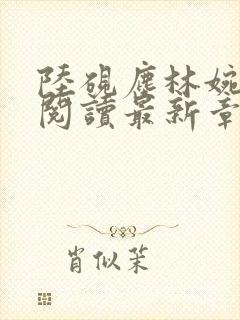 陸硯塵林婉
閱讀最新章
肖似茉